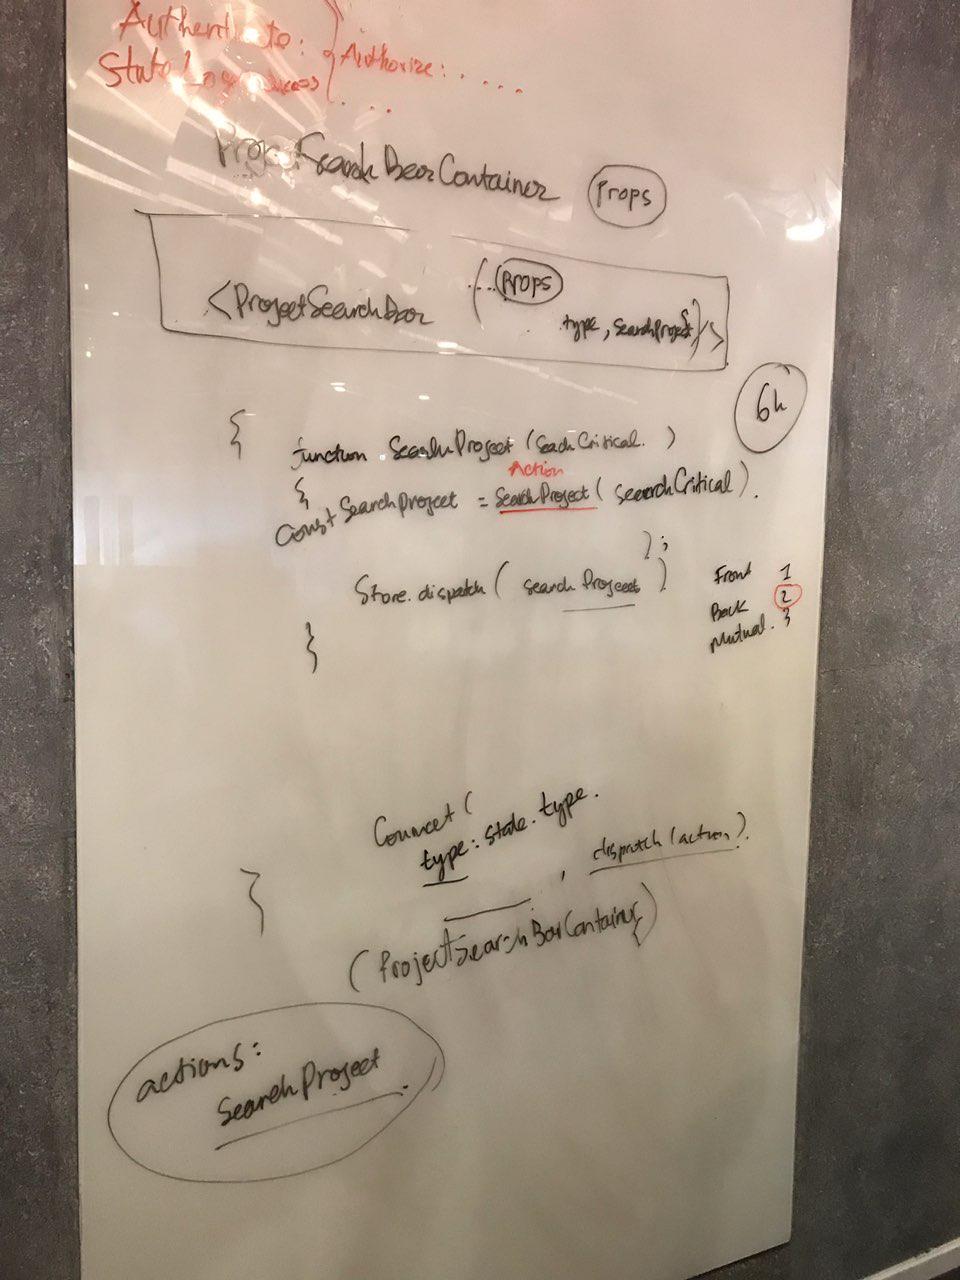 Authenticate: { Authorize: . . . .
State
ProjectSearchBarContainer props
<ProjectSearchBar {...props
type, searchProject} />
6h
{
function SearchProject (seachCritical. )
Action
{
const SearchProject = SearchProject ( searchCritical ) .
) ;
Store.dispatch ( searchProject )
Front 1
Back 2
Mutual. 3
}
Connect (
type: state.type.
, dispatch (action).
}
(ProjectSearchBarContainer)
actions:
SearchProject